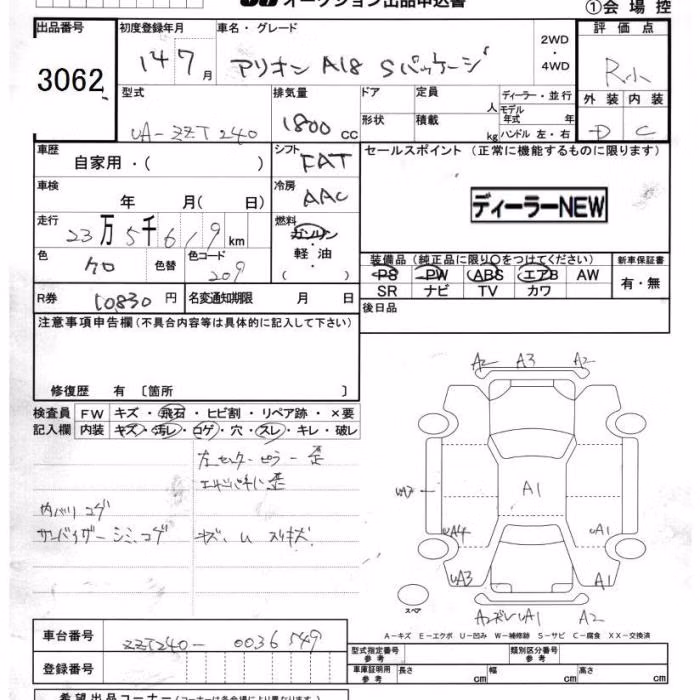 オークション出品申込書
①会場控
出品番号
3062
初度登録年月
14 7月
車名・グレード
アリオン A18 Sパッケージ
2WD
・
4WD
評価点
R
外装 内装
D C
型式
UA-ZZT240
排気量
1800 cc
ドア 定員 人
形状 積載 kg
ディーラー・並行
モデル
年式 年
ハンドル 左・右
車歴
自家用・( )
シフト
FAT
セールスポイント (正常に機能するものに限ります)
ディーラーNEW
車検
年 月(日)
冷房
AAC
走行
23万5千619km
燃料
ガソリン
軽油
( )
色
クロ
色替
色コード
209
装備品 (純正品に限り〇をつけてください)
PS PW ABS エアB AW
SR ナビ TV カワ
新車保証書
有・無
R券 10830円
名変通知期限 月 日
後日品
注意事項申告欄 (不具合内容等は具体的に記入して下さい)
修復歴 有 〔箇所 〕
検査員 FW キズ・飛石・ヒビ割・リペア跡・×要
記入欄 内装 キズ・汚レ・コゲ・穴・スレ・キレ・破レ
左センターピラー歪
内ハリコゲ
サンバイザーシミ、コゲ
A2 A3 A2
A1
UA4 UA1
UA3 A1
A2ズレUA1 A2
スペア
A-キズ E-エクボ U-凹み W-補修跡 S-サビ C-腐食 XX-交換済
車台番号 ZZT240-0036549
登録番号
型式指定番号
参考
類別区分番号
参考
車庫証明用
参考
長さ cm 幅 cm 高さ cm
希望出品コーナー (コーナーは各会場により異なります)